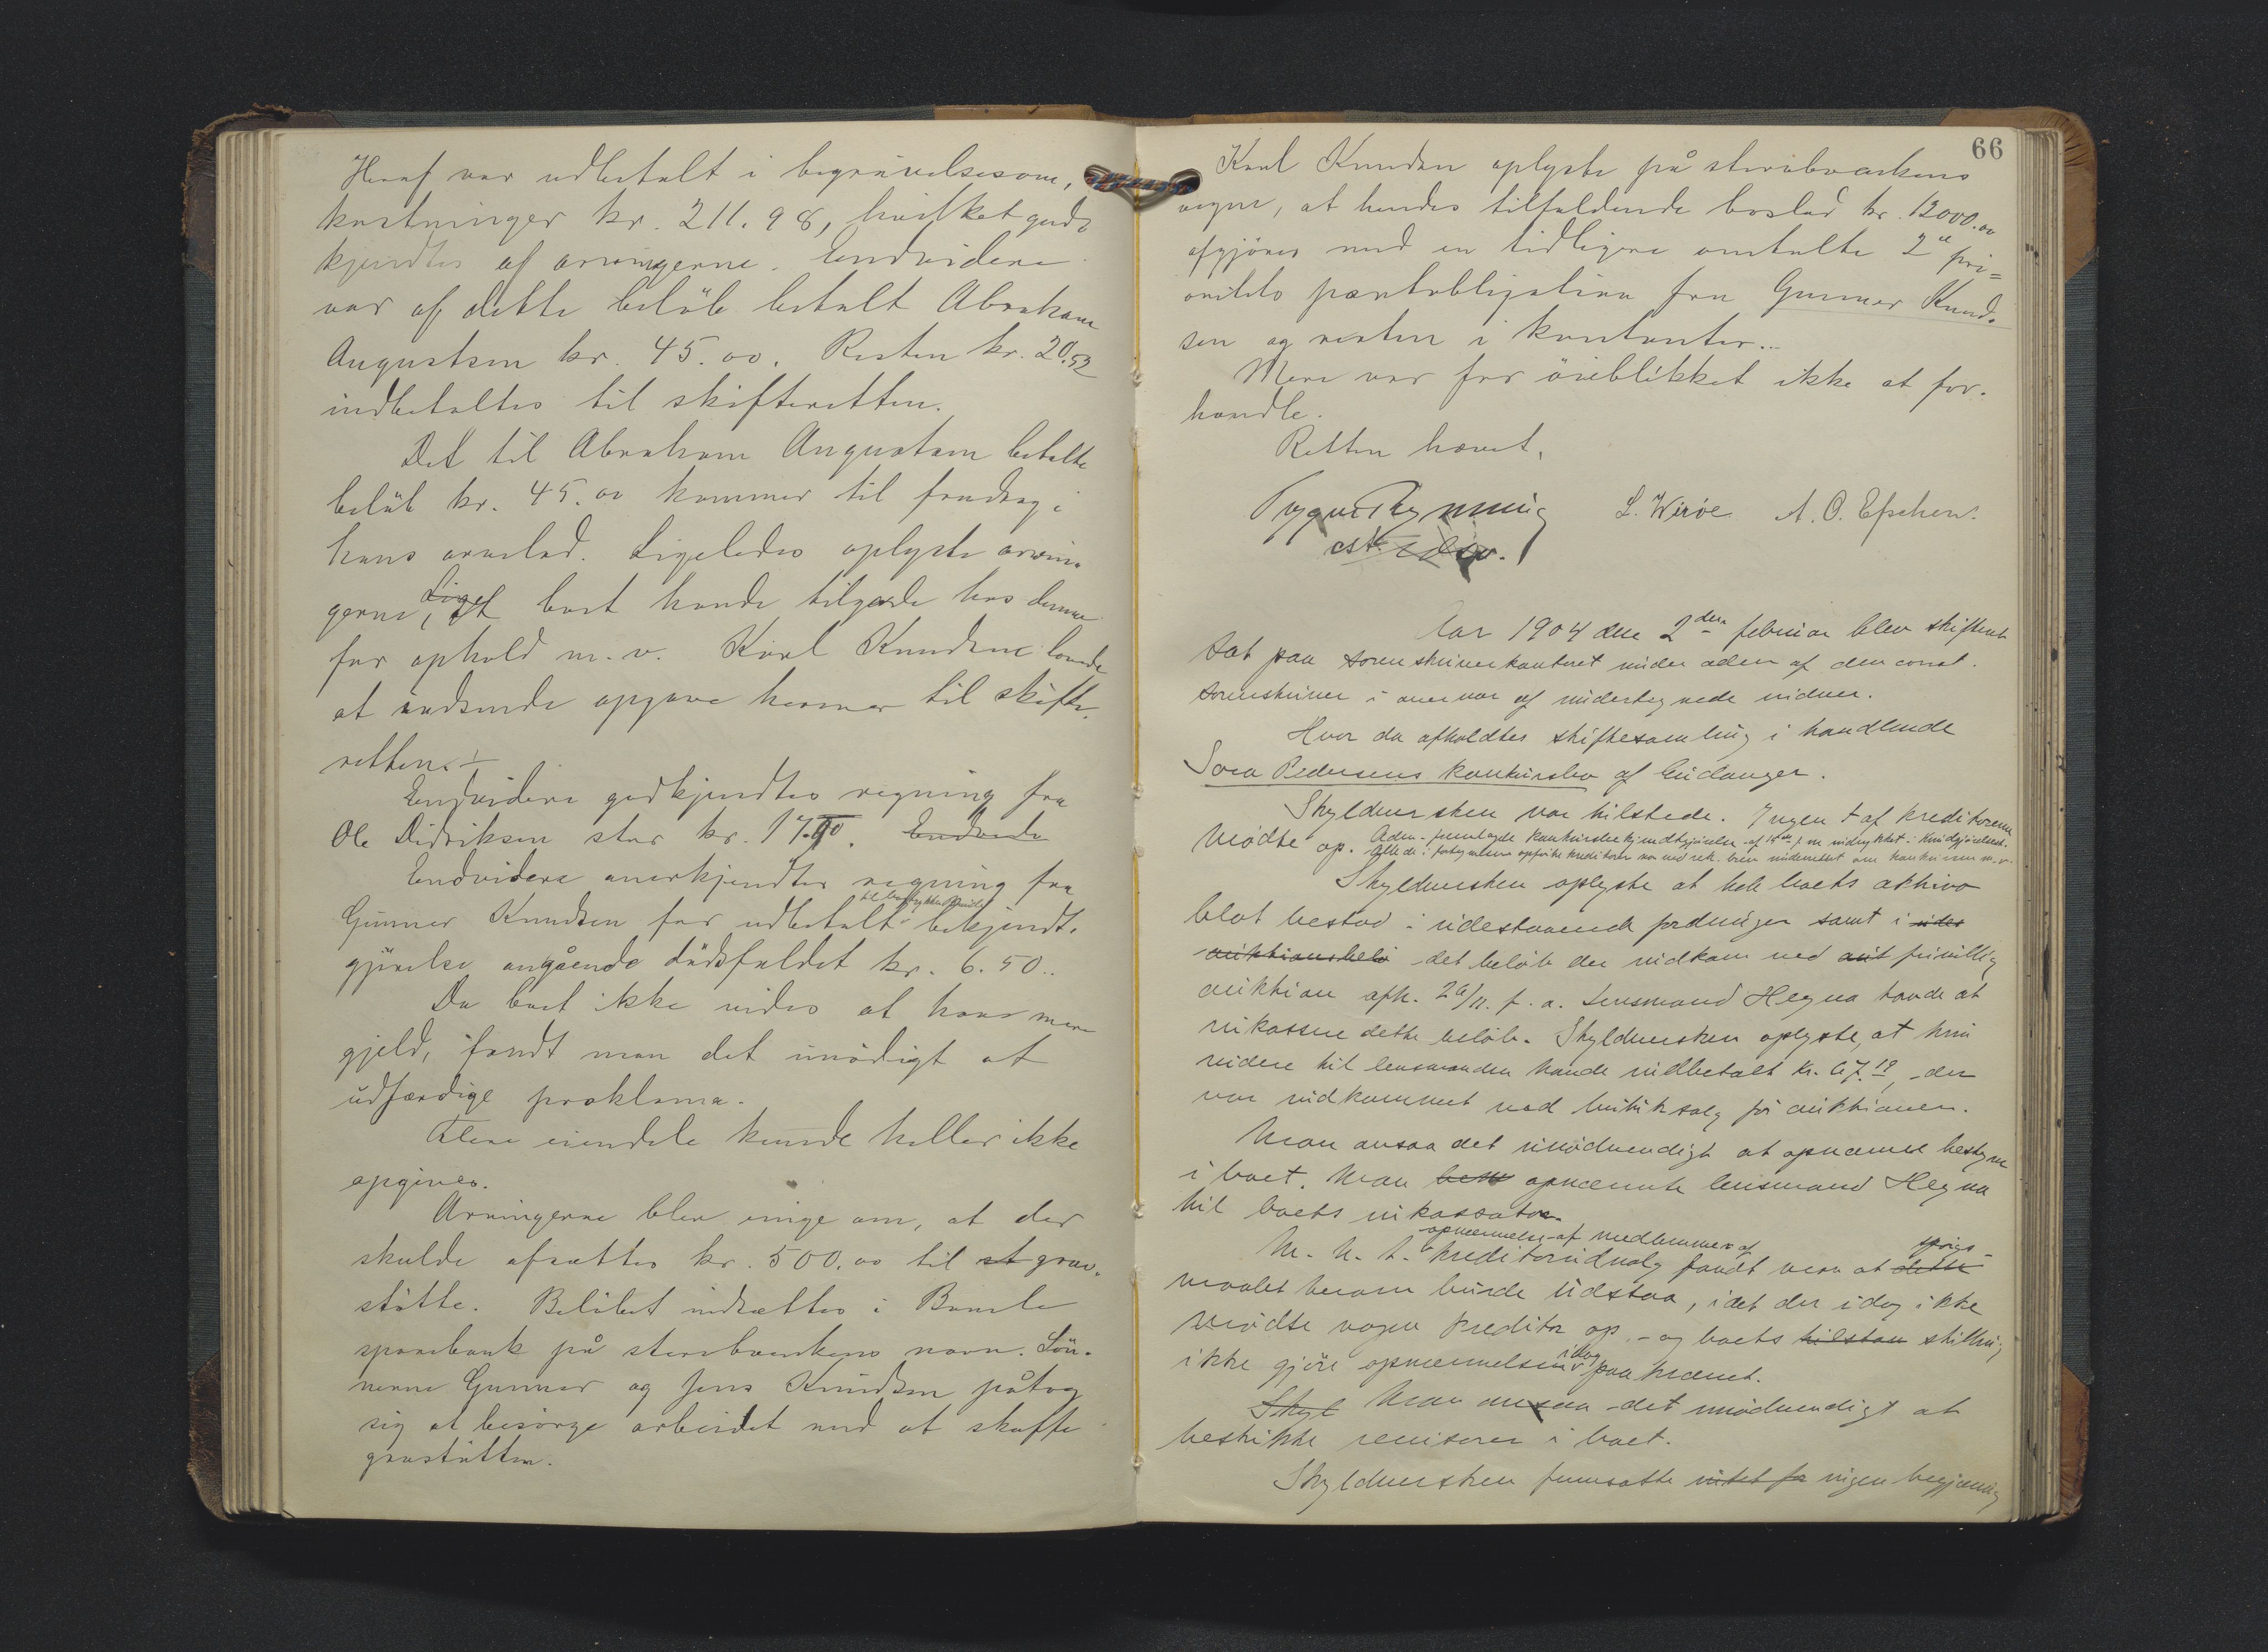 Heraf var udbetalt i begravelsesom,
kostninger kr. 211.98, hvilket god,
kjendtes af arvingerne. Endvidere
var af dette beløb betalt Abraham
Augustsen kr. 45.00. Resten kr. 20.52
indbetaltes til skifteretten.
Det til Abraham Augustsen betalte
beløb kr. 45.00 kommer til fradrag i
hans arvelod. Ligeledes oplyste arvin,
gerne, at boet havde tilgode hos denne
for ophold m.v. Karl Knudsen lovede
at indsende opgave herover til skifte,
retten.
Endvidere godkjendtes regning fra
Ole Didriksen stor kr. 17.00. Endvide
Endvidere anerkjendtes regning fra
Gunner Knudsen for udbetalt bekjendt,
gjørelse angående dødsfaldet kr. 6.50..
Da boet ikke vides at have mere
gjeld, fandt man det unødigt at
udfærdige proklama.
Flere eiendele kunde heller ikke
opgives.
Arvingerne blev enige om, at der
skulde afsættes kr. 500.00 til et grav,
støtte. Beløbet indsættes i Bamle
sparebank på sterbboenkens navn. Søn-
nerne Gunner og Jens Knudsen påtog
sig at besørge arbeidet med at skaffe
gravstøtten.
66
Karl Knudsen oplyste på sterbboenkens
vegne, at hendes tilfaldende boslod kr. 13000.00
afgjøres med en tidligere omtalte 2den pri=
oritets pantobligation fra Gunner Knud,
sen og resten i kontanter..
Mere var for øieblikket ikke at for-
handle.
Retten hævet.
Trygve Rynning L. Wirøe A. O. Eschen.
cst.
Aar 1904 den 2den februar blev skifteret
sat paa sorenskriverkontoret under ledn af den const.
sorenskriver i overvær af undertegnede vidner.
Hvor da afholdtes skiftesamling i handlende
Sora Pedersens konkursbo af Eidanger.
Skyldnersken var tilstede. Ingen af kreditorerne
mødte op. Adm. fremlagde konkursbekjendtgjørelse af f. m. indrykket i Kundgjørelsest.
Alle de i fortegnelsen opførte kreditorer var ved rek. brev underrettet om konkursen m.v.
Skyldnersken oplyste at hele boets aktiva
blot bestod i udestaaende fordringer samt i udes
auktionsbelø det beløb der indkom ved aut frivillig
auktion afh. 26/11. f. a. Lensmand Hegna havde at
inkassere dette beløb. Skyldnersken oplyste, at hun
videre til lensmanden havde indbetalt kr. 67.19, der
var indkommet ved butiksalg før auktionen.
Man ansaa det unødvendigt at opnævne bestyrer
i boet. Man be opnævnte lensmand Hegna
til boets inkassator.
opnævnelse af medlemmer af spørgs-
M. H. t. kreditorudvalg fandt man at dette
maalet herom burde udstaa, idet der idag ikke
mødte nogen kreditor op, - og boets tilstan stilling
ikke gjør opnævnelsen idag paakrævet.
Skyl Man ansaa det unødvendigt at
beskikke revisorer i boet.
Skyldnersken fremsatte intet fo ingen begjæring